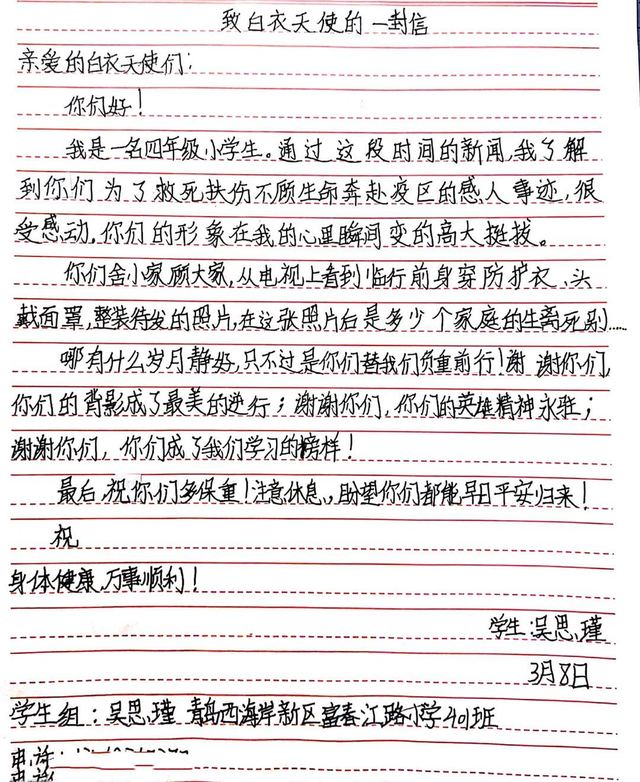 致白衣天使的一封信
亲爱的白衣天使们：
你们好！
我是一名四年级小学生。通过这段时间的新闻,我了解
到你们为了救死扶伤不顾生命奔赴疫区的感人事迹,很
受感动,你们的形象在我的心里瞬间变的高大挺拔。
你们舍小家顾大家,从电视上看到临行前身穿防护衣、头
戴面罩,整装待发的照片,在这张照片后是多少个家庭的生离死别……
哪有什么岁月静好,只不过是你们替我们负重前行!谢谢你们,
你们的背影成了最美的逆行；谢谢你们,你们的英雄精神永驻；
谢谢你们,你们成了我们学习的榜样！
最后,祝你们多保重!注意休息,,盼望你们都能早日平安归来！
祝
身体健康,万事顺利！
学生:吴思瑾
3月8日
学生组：吴思瑾 青岛西海岸新区富春江路小学401班
电话: